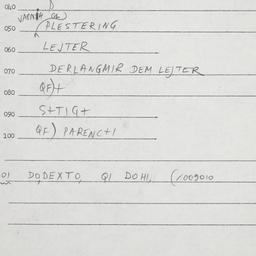 040
050 (PLESTERING
060 LEJTER
070 DERLANGMIR DEM LEJTER
080 QF)+
090 S+TIG+
100 QF) PARENC+1
01 DODEXTO, QI DOHI, (1009010